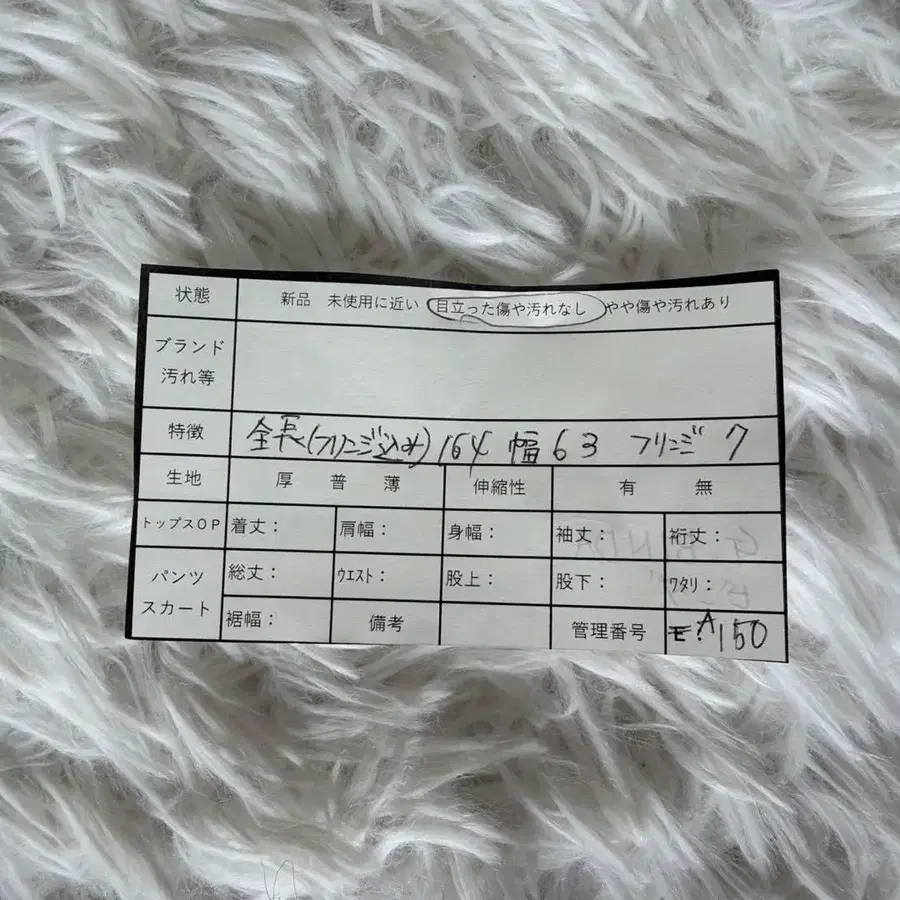 状態 新品 未使用に近い 目立った傷や汚れなし やや傷や汚れあり
ブランド
汚れ等
特徴 全長(フリンジ込み)164 幅63 フリンジ7
生地 厚 普 薄 伸縮性 有 無
トップスOP 着丈: 肩幅: 身幅: 袖丈: 裄丈:
パンツ
スカート
総丈: ウエスト: 股上: 股下: ワタリ:
裾幅: 備考 管理番号 モA150